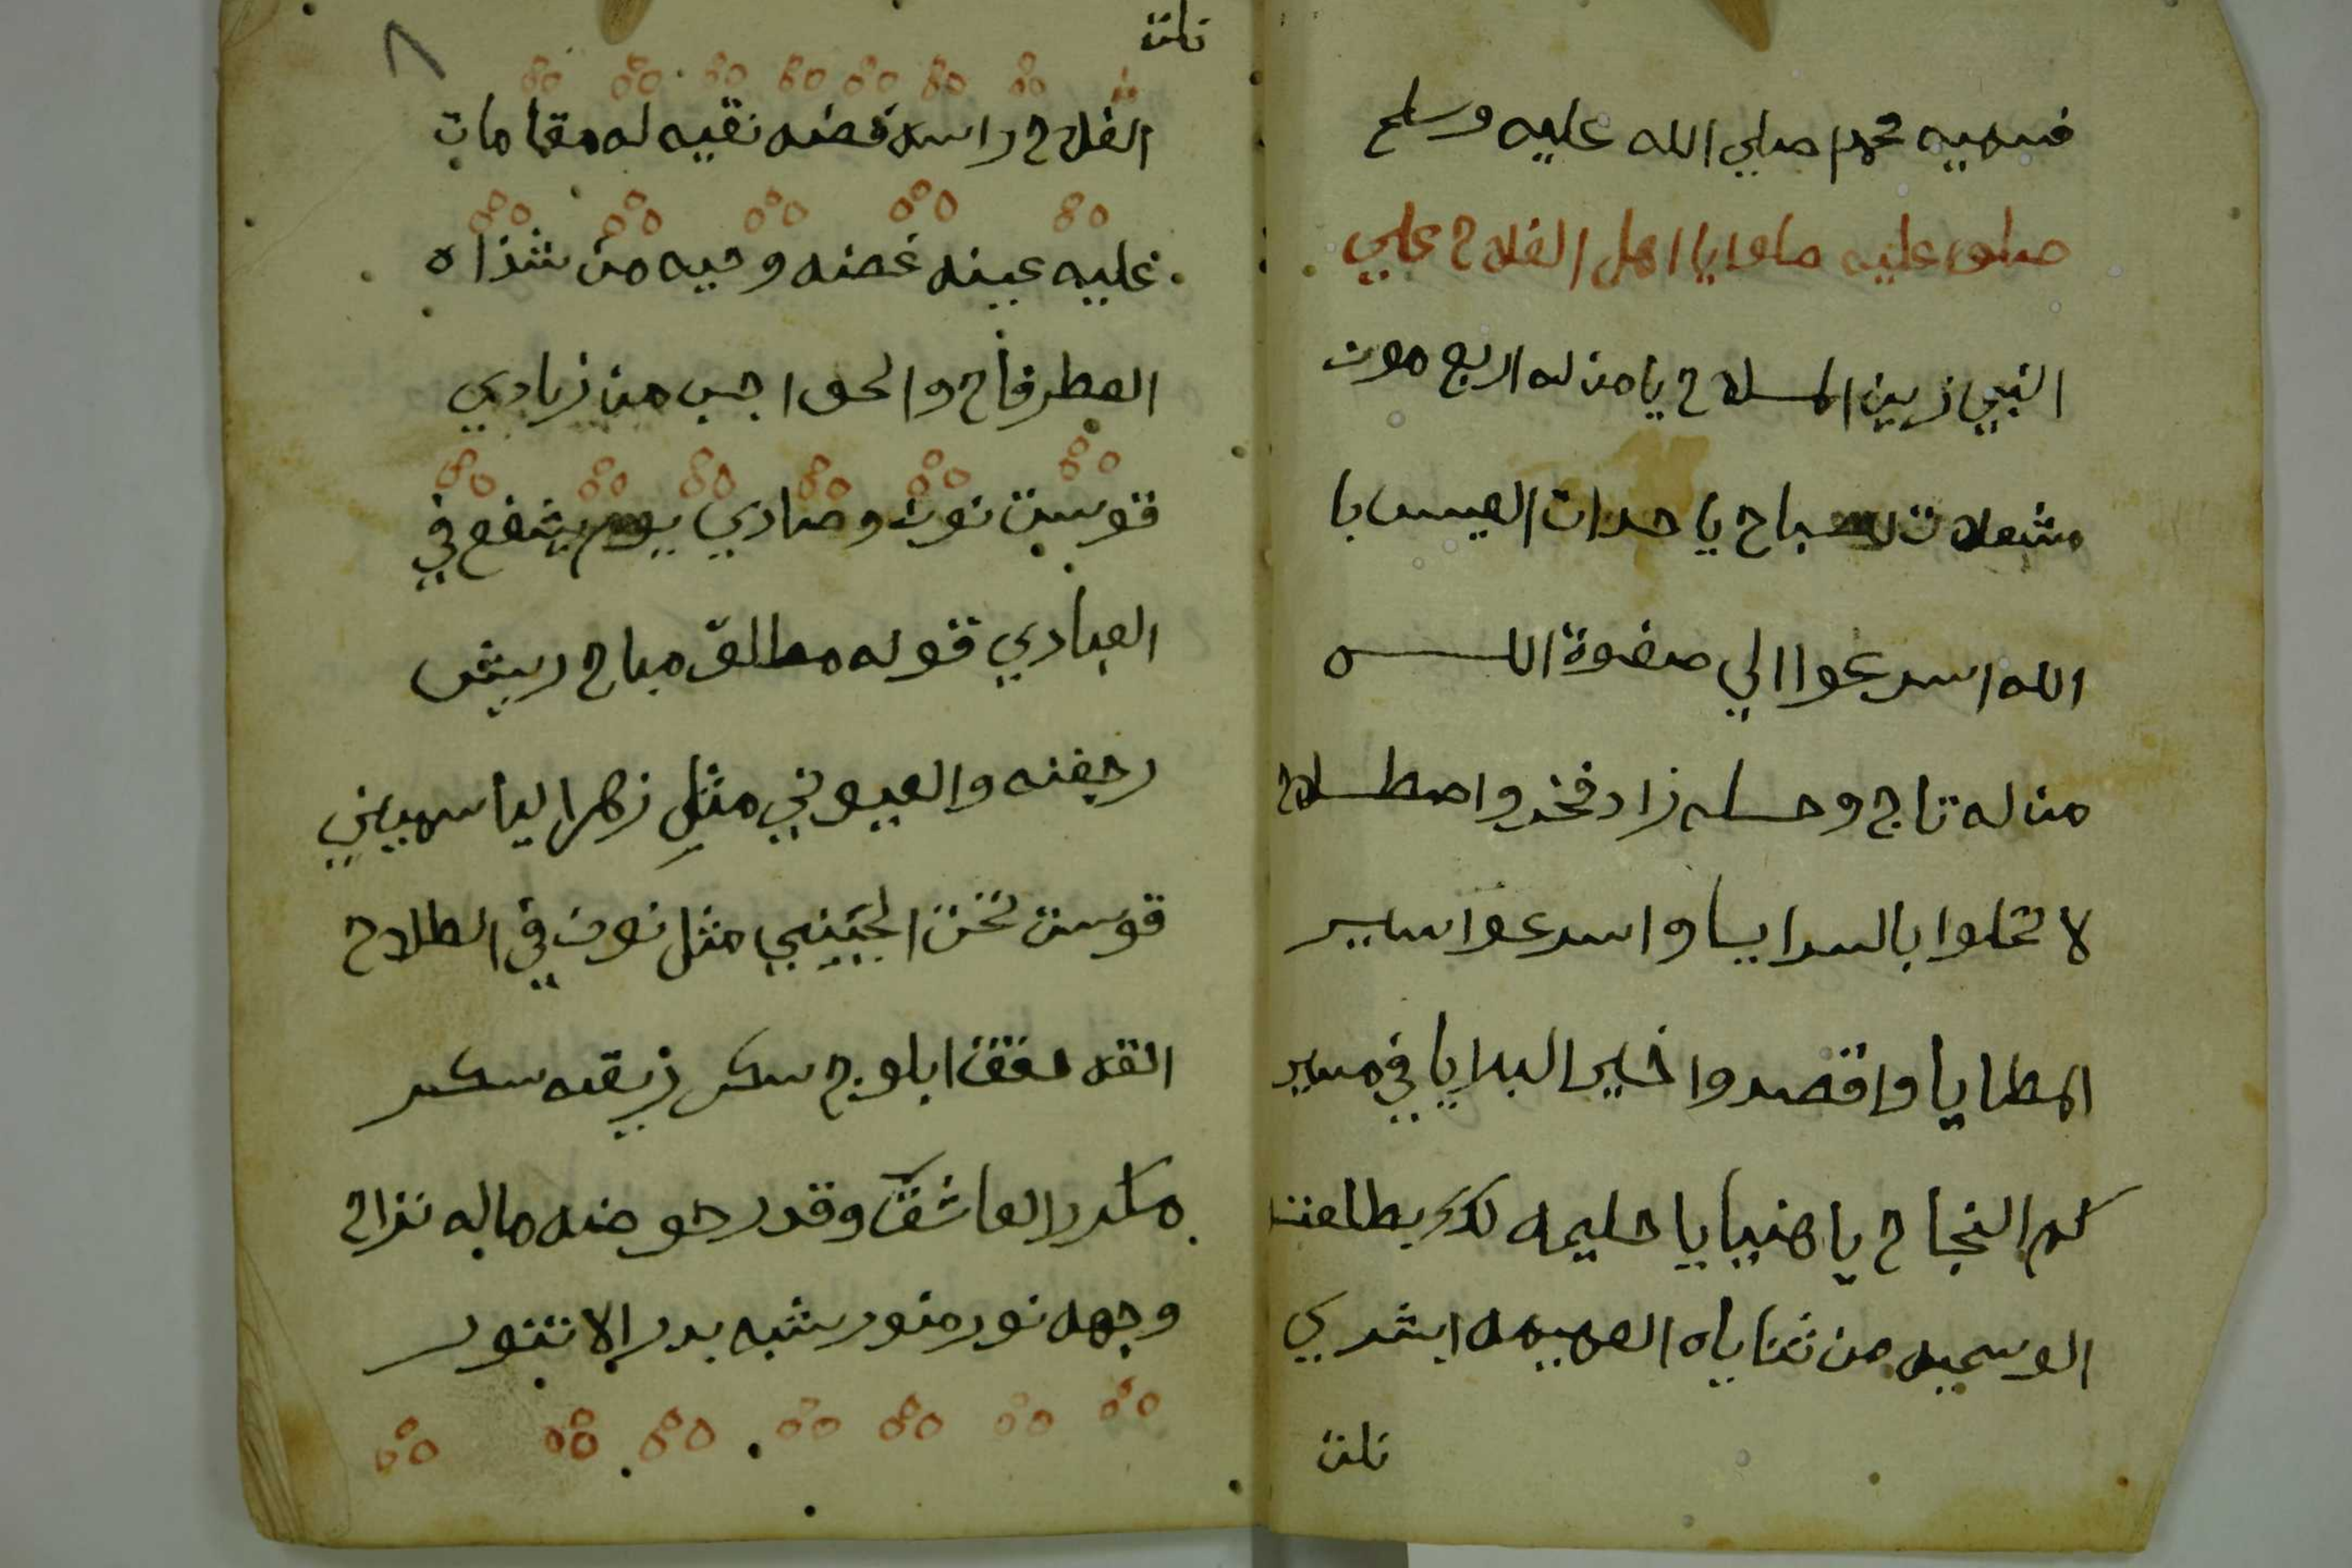 فسميه محمدا صلي الله عليه وسلم
صلوا عليه صلوا يا اهل الفلاح علي
النبي زين الملاح يا من له اربع مون
مشعلات للصباح يا حدات العيس با
الله اسرعوا الي صفوة الله
من له تاج وحله زاد فخر واصطلاح
لا تحلوا بالسرايا واسرعوا سير
المطايا واقصدوا خير البرايا في مسير
كم النجاح يا هنيا يا حليمه لكي بطلعت
الوسيمه من ثناياه العميمه ابشري
تلت
تلت
٨
الفلاح راسه فضه نقيه له مقامات
عليه عينه غضنه وحيه من شذاه
العطر فاح والحواجب من زبادي
قوست نون وصادي يوم يشفع في
العبادي قوله مطلق مباح ريش
رجفنه والعيوني مثل زهر الياسميني
قوست تحت الجبيني مثل نون في الطلاح
ابلوج سكر زيقه سكر
مكرر العاشق وقدر حوضه ماله نزاح
وجهه نور منور شبه بدر الا تنور